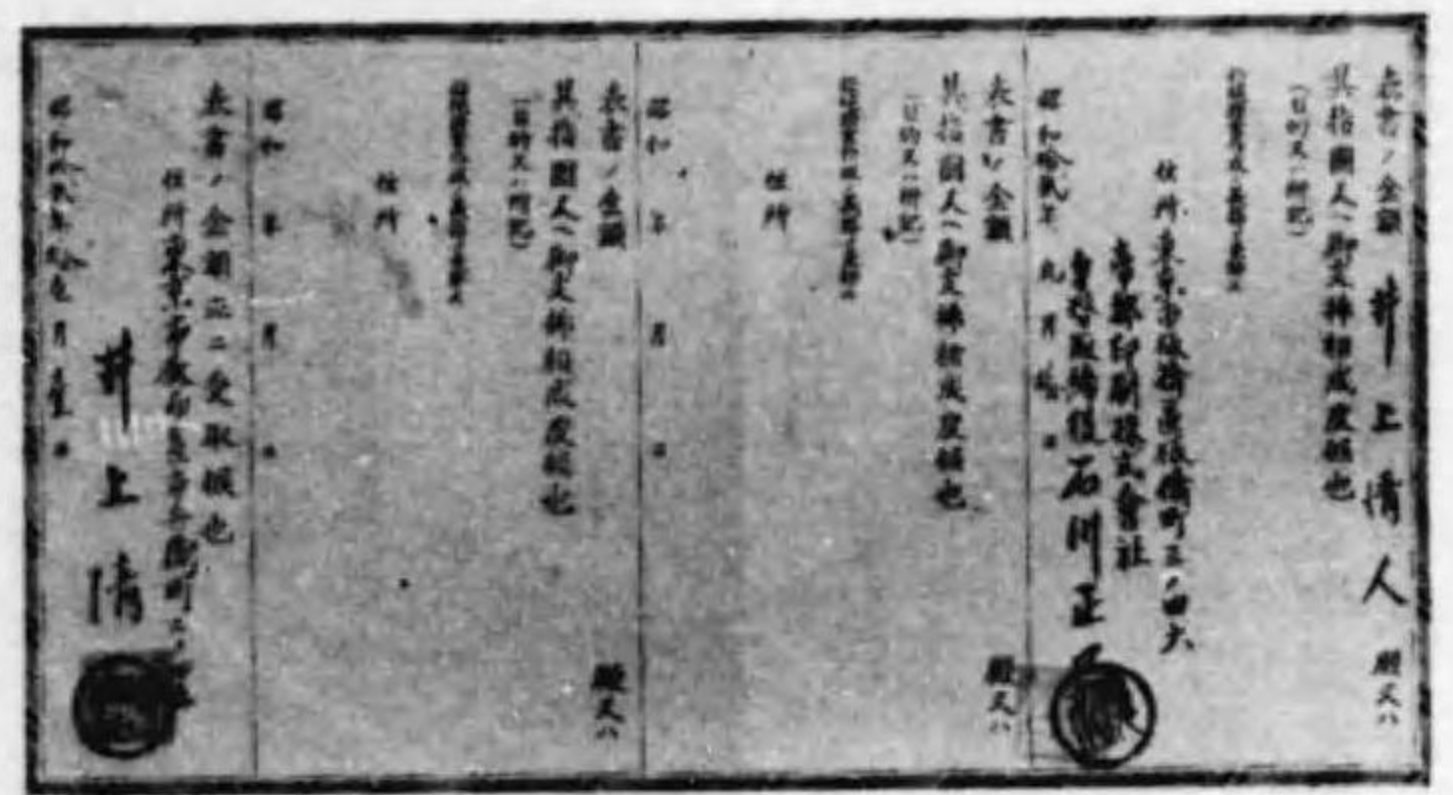 表書ノ金額 井上清人 殿又ハ
其指圖人ヘ御支拂相成度候也
(目的又ハ附記)
拒絶證書作成ノ義務ヲ免除ス
住所 東京市板橋區板橋町三ノ四六
帝都印刷株式會社
取締役 石川正
昭和拾貳年 九月 日
表書ノ金額 殿又ハ
其指圖人ヘ御支拂相成度候也
(目的又ハ附記)
拒絶證書作成ノ義務ヲ免除ス
住所
昭和 年 月 日
表書ノ金額 殿又ハ
其指圖人ヘ御支拂相成度候也
(目的又ハ附記)
拒絶證書作成ノ義務ヲ免除ス
住所
昭和 年 月 日
表書ノ金額正ニ受取候也
住所 東京市
井上清
昭和拾貳年拾壱月壱日